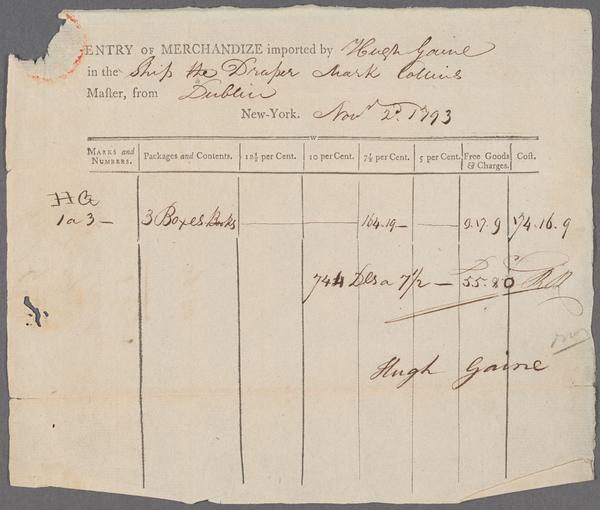 ENTRY OF MERCHANDIZE imported by Hugh Gaine
in the Ship the Draper Mark Collins
Maſter, from Dublin
New-York. Novr 2d. 1793
W
MARKS and NUMBERS. Packages and Contents. 12½ per Cent. 10 per Cent. 7½ per Cent. 5 per Cent. Free Goods & Charges. Coſt.
HG
1 a 3 — 3 Boxes Books 164.19 — 9.17.9 174.16.9
744 Dls a 7 1/2 — 55.80
Hugh Gaine